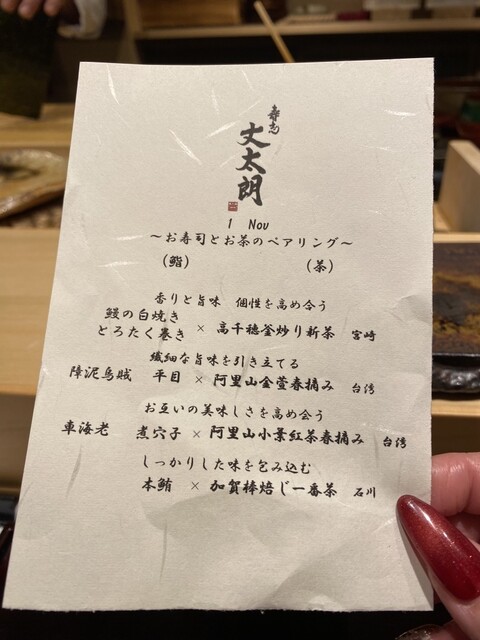 寿志
丈太朗
1 Nov
～お寿司とお茶のペアリング～
(鮨) (茶)
香りと旨味 個性を高め合う
鰻の白焼き
とろたく巻き × 高千穂釜炒り新茶 宮崎
繊細な旨味を引き立てる
障泥烏賊 平目 × 阿里山金萱春摘み 台湾
お互いの美味しさを高め会う
車海老 煮穴子 × 阿里山小葉紅茶春摘み 台湾
しっかりした味を包み込む
本鮪 × 加賀棒焙じ一番茶 石川